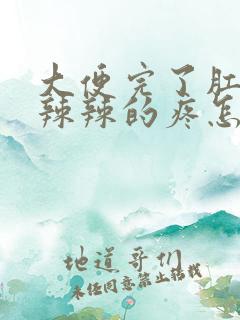 大便完了肛
辣辣的疼怎
地道哥们
未经同意禁止转载